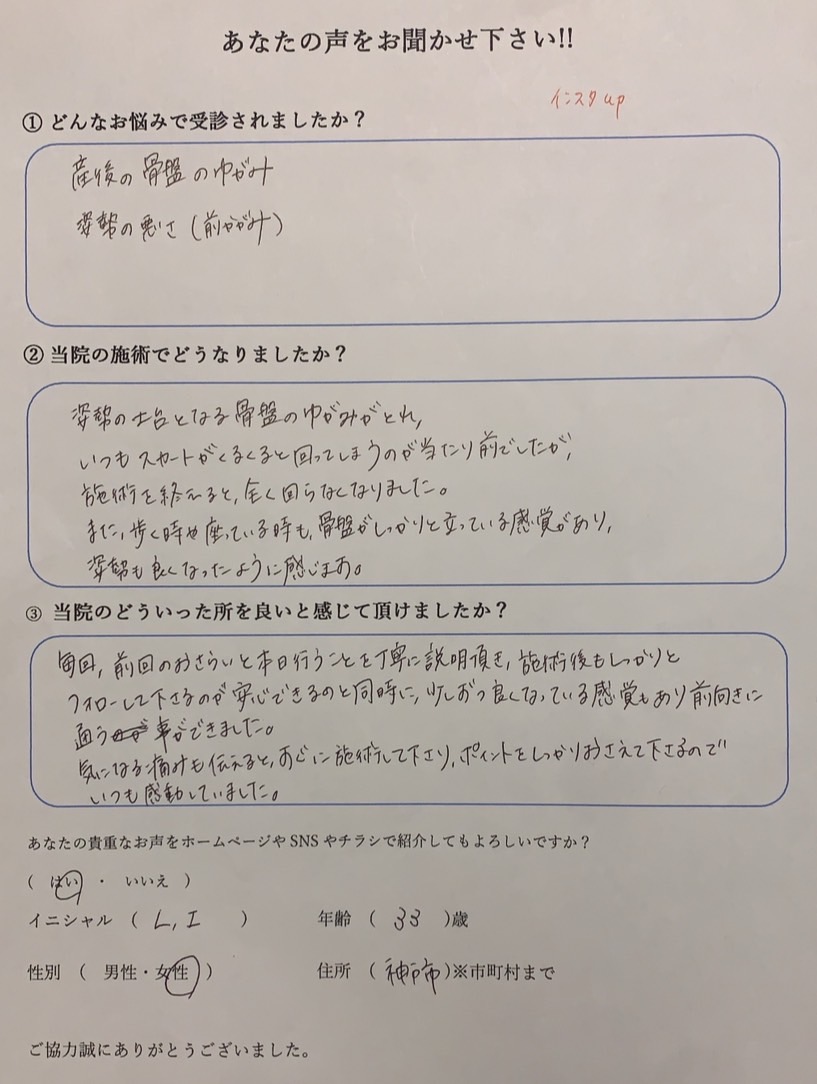 あなたの声をお聞かせ下さい!!
インスタup
① どんなお悩みで受診されましたか？
産後の骨盤のゆがみ
姿勢の悪さ（前かがみ）
② 当院の施術でどうなりましたか？
姿勢の土台となる骨盤のゆがみがとれ,
いつもスカートがくるくると回ってしまうのが当たり前でしたが,
施術を終えると,全く回らなくなりました。
また,歩く時や座っている時も,骨盤がしっかりと立っている感覚があり,
姿勢も良くなったように感じます。
③ 当院のどういった所を良いと感じて頂けましたか？
毎回,前回のおさらいと本日行うことを丁寧に説明頂き,施術後もしっかりと
フォローして下さるのが安心できるのと同時に,少しずつ良くなっている感覚もあり前向きに
通う事ができました。
気になる痛みも伝えると,すぐに施術して下さり,ポイントをしっかりおさえて下さるので
いつも感動していました。
あなたの貴重なお声をホームページや SNS やチラシで紹介してもよろしいですか？
（ はい ・ いいえ ）
イニシャル （ L, I ） 年齢 （ 33 ）歳
性別 （ 男性・女性 ） 住所 （ 神戸市 ）※市町村まで
ご協力誠にありがとうございました。